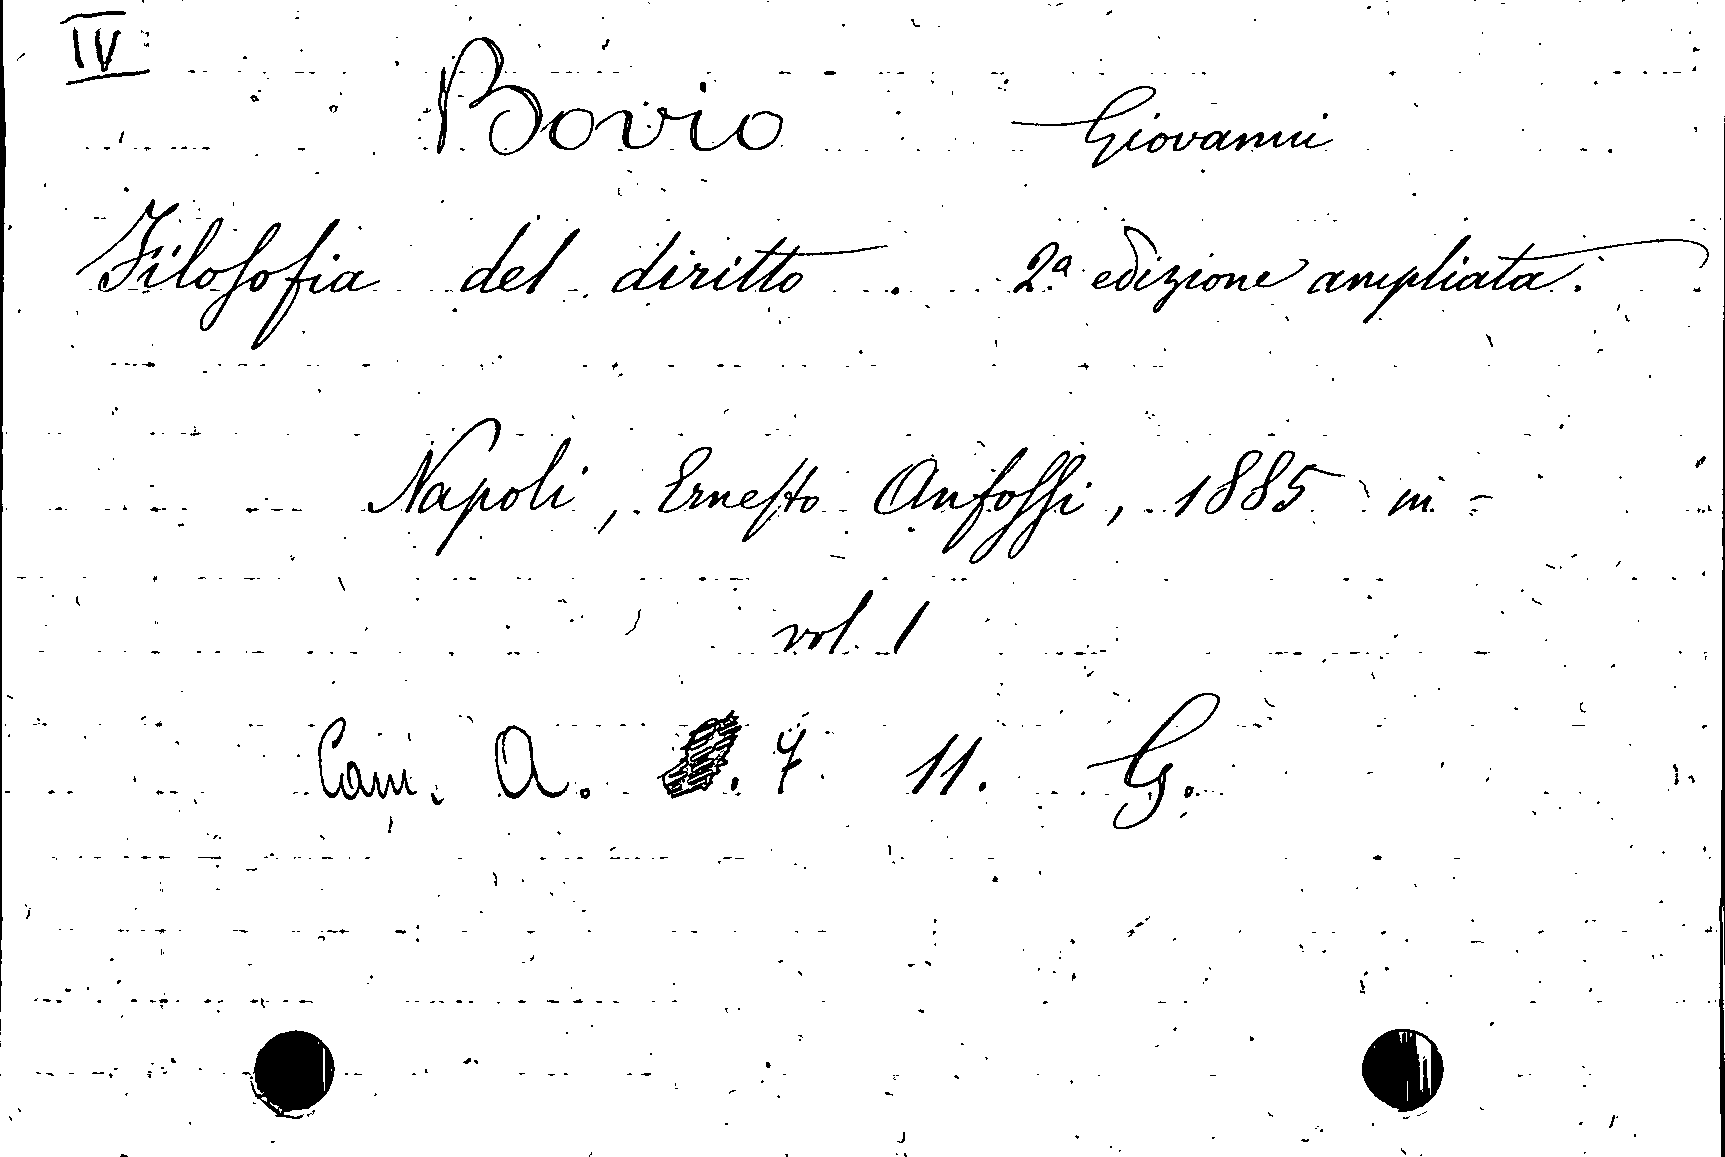 IV
Bovio Giovanni
Filosofia del diritto. 2ª edizione ampliata.
Napoli, Ernesto Anfossi, 1885 in -
vol. 1
Cam. A. 7. 11. G.